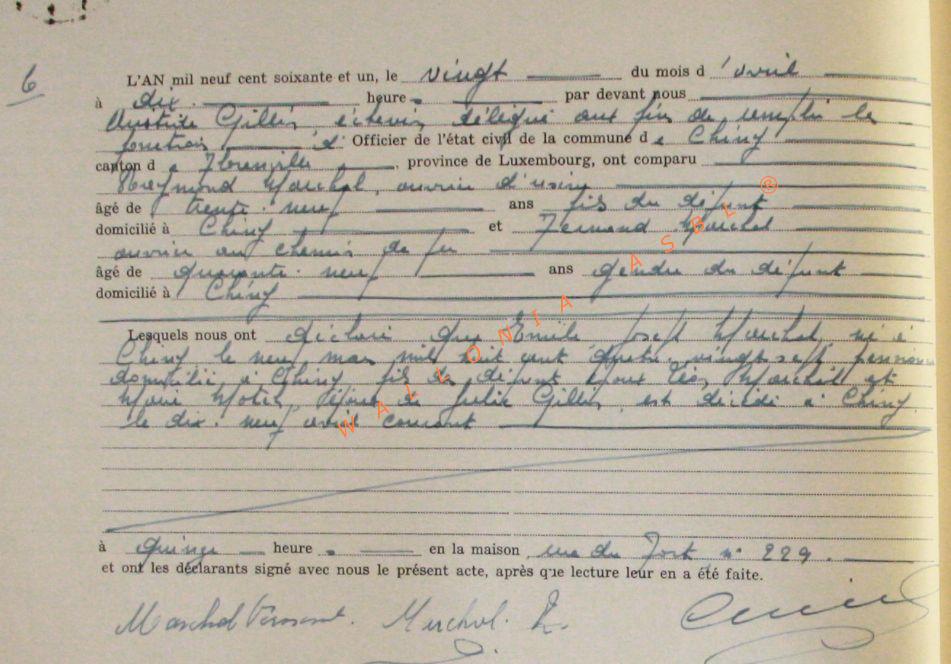 6
L'AN mil neuf cent soixante et un, le vingt du mois d'avril
à dix heure par devant nous
Gillis échevin délégué aux fins de remplir les
fonctions d' Officier de l'état civil de la commune de Chiny
canton de Florenville, province de Luxembourg, ont comparu
Raymond Marchal, ouvrier d'usine
âgé de trente-neuf ans fils du défunt
domicilié à Chiny et Fernand Marchal
ouvrier au chemin de fer
âgé de quarante-neuf ans gendre du défunt
domicilié à Chiny
Lesquels nous ont déclaré que Emile Joseph Marchal, né à
Chiny le neuf mars mil huit cent quatre-vingt sept, pensionné
domicilié à Chiny fils de défunt Léon Marchal et
Marie époux de Julie Gillis, est décédé à Chiny
le dix-neuf avril courant
à quinze heure en la maison rue du Fort n° 229.
et ont les déclarants signé avec nous le présent acte, après que lecture leur en a été faite.
Marchal Fernand. Marchal. R.
WALLONIA ASBL ®